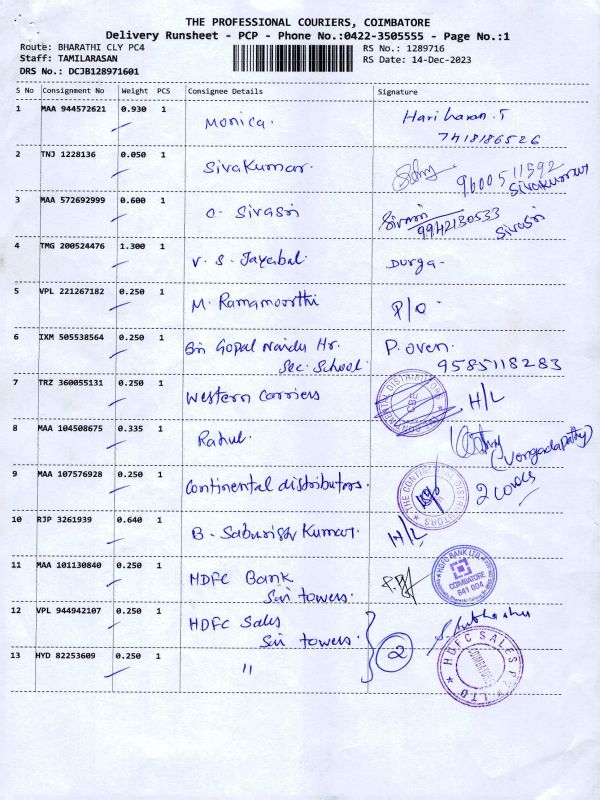 THE PROFESSIONAL COURIERS, COIMBATORE
Delivery Runsheet - PCP - Phone No.:0422-3505555 - Page No.:1
Route: BHARATHI CLY PC4 RS No.: 1289716
Staff: TAMILARASAN RS Date: 14-Dec-2023
DRS No.: DCJB128971601
S No Consignment No Weight PCS Consignee Details Signature
1 MAA 944572621 0.930 1 Monica. Hariharan.T
7418186526
2 TNJ 1228136 0.050 1 SivaKumar. 9600511592
Sivakumar
3 MAA 572692999 0.600 1 O. Sivasri
9942130533 Sivasri
4 TMG 200524476 1.300 1 V. S. Jayabal. Durga.
5 VPL 221267182 0.250 1 M. Ramamoorthi P/O.
6 IXM 505538564 0.250 1 Gopal Naidu Hr. P. oven.
Sec. School. 9585118283
7 TRZ 360055131 0.250 1 Western carriers H/L
8 MAA 104508675 0.335 1 Rahul.
9 MAA 107576928 0.250 1 Continental distributors. THE CONTINENTAL DISTRIBUTORS 2 covers
10 RJP 3261939 0.640 1 B. Sabarish Kumar. H/L
11 MAA 101130840 0.250 1 HDFC Bank HDFC BANK LTD. COIMBATORE 641 004
Sri towers.
12 VPL 944942107 0.250 1 HDFC Sales
Sri towers. 2
13 HYD 82253609 0.250 1 " HDFC SALES PVT LTD